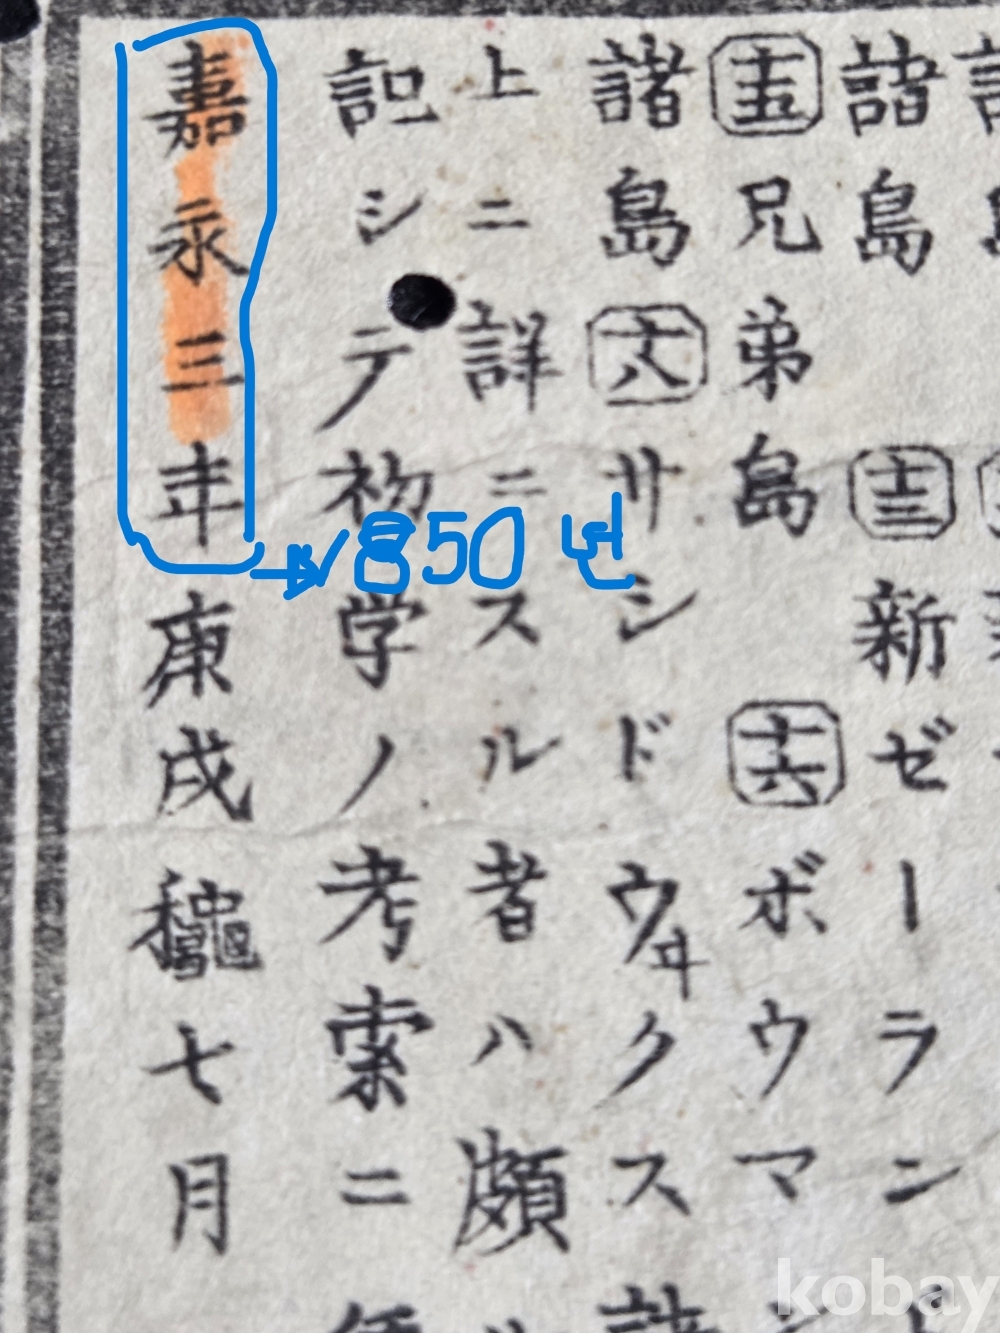 諸島 十三 新ゼーラン
十五 兄弟島 十六 ボウマ
諸島 十八 サシドウヰクス
上ニ詳ニスル者ハ頗ル
記シテ初学ノ考索ニ
嘉永三年庚戌龝七月
1850년
kobay